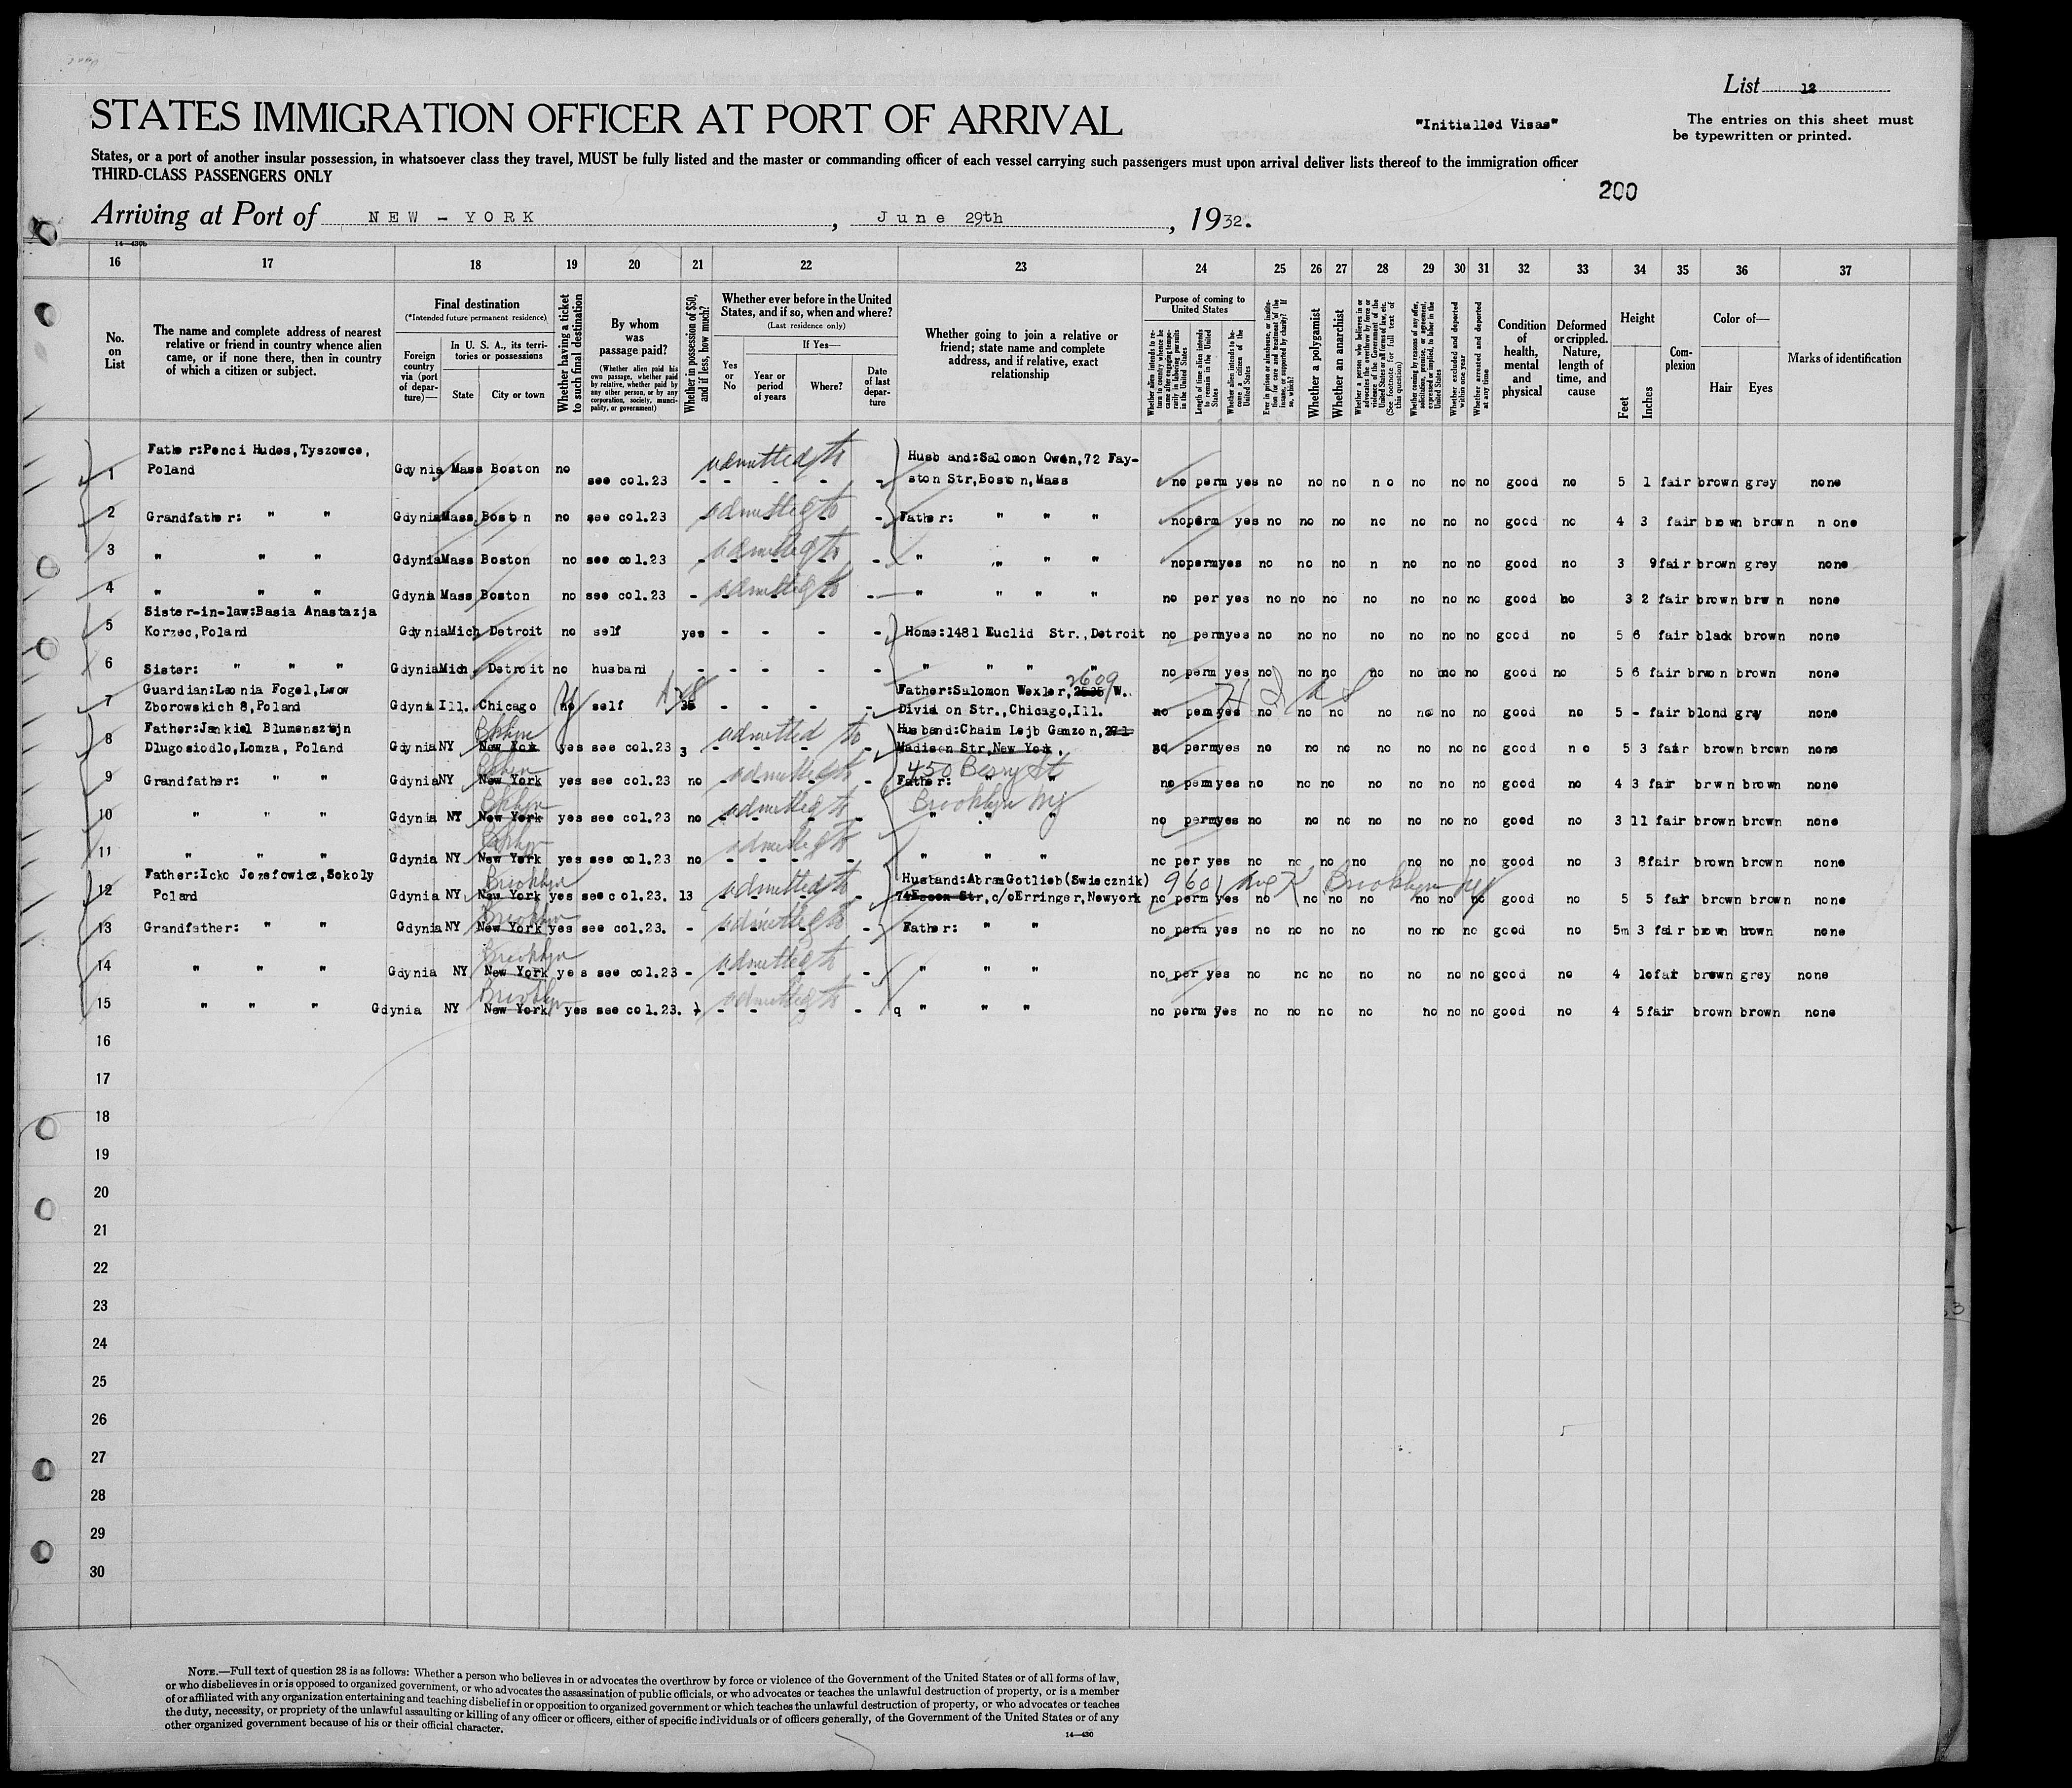 List 12
STATES IMMIGRATION OFFICER AT PORT OF ARRIVAL
"Initialled Visas"
The entries on this sheet must
be typewritten or printed.
States, or a port of another insular possession, in whatsoever class they travel, MUST be fully listed and the master or commanding officer of each vessel carrying such passengers must upon arrival deliver lists thereof to the immigration officer
THIRD-CLASS PASSENGERS ONLY
200
Arriving at Port of NEW - YORK, June 29th, 1932.
14—430b
16 17 18 19 20 21 22 23 24 25 26 27 28 29 30 31 32 33 34 35 36 37
No. on List
The name and complete address of nearest relative or friend in country whence alien came, or if none there, then in country of which a citizen or subject.
Final destination
(*Intended future permanent residence)
Foreign country via (port of departure)—
In U. S. A., its territories or possessions
State
City or town
Whether having a ticket to such final destination
By whom was passage paid?
(Whether alien paid his own passage, whether paid by relative, whether paid by any other person, or by any corporation, society, municipality, or government)
Whether in possession of $50, and if less, how much?
Whether ever before in the United States, and if so, when and where?
(Last residence only)
Yes or No
If Yes—
Year or period of years
Where?
Date of last departure
Whether going to join a relative or friend; state name and complete address, and if relative, exact relationship
Purpose of coming to United States
Whether alien intends to return to country whence he came after engaging temporarily in laboring pursuits in the United States
Length of time alien intends to remain in the United States
Whether alien intends to become a citizen of the United States
Ever in prison or almshouse, or institution for care and treatment of the insane, or supported by charity? If so, which?
Whether a polygamist
Whether an anarchist
Whether a person who believes in or advocates the overthrow by force or violence of the Government of the United States or all forms of law, etc. (See footnote for full text of this question)
Whether coming by reasons of any offer, solicitation, promise, or agreement, expressed or implied, to labor in the United States
Whether excluded and deported within one year
Whether arrested and deported at any time
Condition of health, mental and physical
Deformed or crippled. Nature, length of time, and cause
Height
Feet
Inches
Complexion
Color of—
Hair
Eyes
Marks of identification
1 Father:Penci Hudes,Tyszowce, Poland Gdynia Mass Boston no see col.23 - - - - - admitted to Husband:Salomon Owen,72 Fayston Str,Boston,Mass no perm yes no no no no no no no good no 5 1 fair brown grey none
2 Grandfather: " " Gdynia Mass Boston no see col.23 admitted to - Father: " " " no perm yes no no no no no no no good no 4 3 fair brown brown none
3 " " " Gdynia Mass Boston no see col.23 - - - - - admitted to " " " " no perm yes no no no n no no no good no 3 9 fair brown grey none
4 " " " Gdynia Mass Boston no see col.23 - - - - - admitted to " " " " no per yes no no no no no no no good no 3 2 fair brown brwn none
5 Sister-in-law:Basia Anastazja Korzec,Poland Gdynia Mich Detroit no self yes - - - - Home:1481 Euclid Str.,Detroit no perm yes no no no no no no no good no 5 6 fair black brown none
6 Sister: " " " Gdynia Mich Detroit no husband - - - - - " " " " no perm yes no no no no no no no good no 5 6 fair brwon brown none
7 Guardian:Leonia Fogel,Lwow Zborowskich 8,Poland Gdynia Ill. Chicago no self 35 - - - - Father:Salomon Wexler, 2609 W. Division Str.,Chicago,Ill. no perm yes no no no no no no no good no 5 - fair blond gry none
8 Father:Jankiel Blumensztejn Dlugosiodlo,Lomza, Poland Gdynia NY New York Bklyn yes see col.23 3 - - - - admitted to Husband:Chaim Lejb Gamzon,271 Madison Str,New York. no perm yes no no no no no no no good no 5 3 fair brown brown none
450 Berry St
Brooklyn NY
9 Grandfather: " " Gdynia NY New York Bklyn yes see col.23 no admitted to - Father: " " no perm yes no no no no no no no good no 4 3 fair brwn brown none
10 " " " Gdynia NY New York Bklyn yes see col.23 no - - - - admitted to " " " no perm yes no no no no no no no good no 3 11 fair brown brown none
11 " " " Gdynia NY. New York Bklyn yes see col.23 no - - - - admitted to " " " no per yes no no no no no no no good no 3 8 fair brown brown none
12 Father:Icko Jozefowicz,Sokoly Poland Gdynia NY. New York Brooklyn yes see col.23. 13 - - - - admitted to Husband:Abram Gotlieb(Swiecznik) Essex Str,c/oErringer,Newyork no perm yes no no no no no no no good no 5 5 fair brown brown none
9601 Ave K Brooklyn NY
13 Grandfather: " " Gdynia NY New York Brooklyn yes see col.23. - - - - - admitted to Father: " " no perm yes no no no no no no no good no 5m 3 fair brown brown none
14 " " " Gdynia NY New York Brooklyn yes see col.23 - - - - - admitted to " " " no per yes no no no no no no no good no 4 10 fair brown grey none
15 " " " Gdynia NY New York Brooklyn yes see col.23. - - - - admitted to q " " " no perm yes no no no no no no no good no 4 5 fair brown brown none
16
17
18
19
20
21
22
23
24
25
26
27
28
29
30
NOTE.—Full text of question 28 is as follows: Whether a person who believes in or advocates the overthrow by force or violence of the Government of the United States or of all forms of law,
or who disbelieves in or is opposed to organized government, or who advocates the assassination of public officials, or who advocates or teaches the unlawful destruction of property, or is a member
of or affiliated with any organization entertaining and teaching disbelief in or opposition to organized government or which teaches the unlawful destruction of property, or who advocates or teaches
the duty, necessity, or propriety of the unlawful assaulting or killing of any officer or officers, either of specific individuals or of officers generally, of the Government of the United States or of any
other organized government because of his or their official character.
14—430